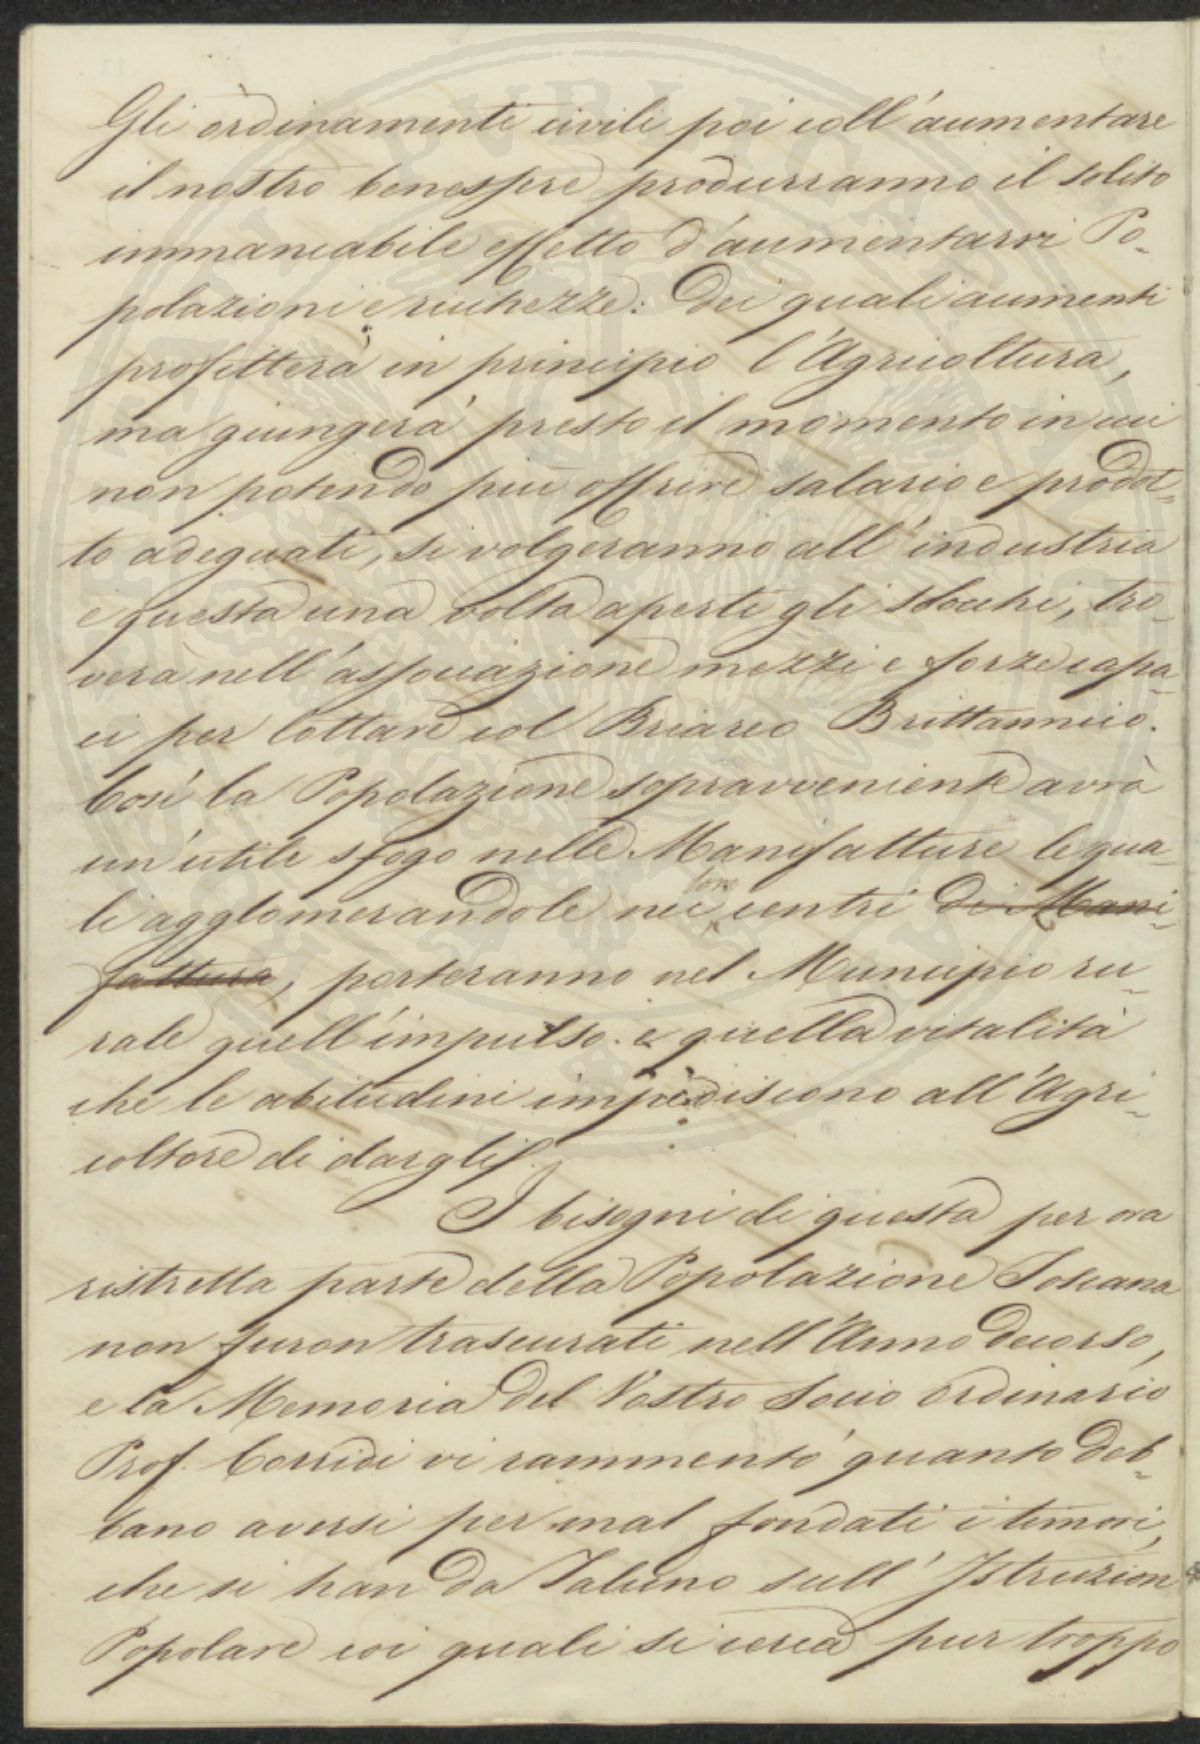 Gli ordinamenti civili poi coll'aumentare
il nostro benessere produrranno il solito
immancabile effetto d'aumentarvi Po-
polazioni e ricchezze: Dei quali aumenti
profitterà in principio l'Agricoltura,
ma giungerà presto il momento in cui
non potendo più offrire salario e prodot-
to adeguati, si volgeranno all'industria
e questa una volta aperti gli sbocchi, tro-
verà nell'associazione mezzi e forze capa-
ci per lottare col Briareo Brittannico.
Così la Popolazione sopravveniente avrà
un'utile sfogo nelle Manifatture le qua-
li agglomerandole nei loro centri di Mani-
fattura, porteranno nel Municipio ru-
rale quell'impulso e quella vitalità
che le abitudini impediscono all'Agri-
coltore di dargli.
I bisogni di questa per ora
ristretta parte della Popolazione Toscana
non furon trascurati nell'Anno decorso,
e la Memoria del Vostro Socio ordinario
Prof. Corridi vi rammentò quanto deb-
bano aversi per mal fondati i timori,
che si han da Taluno sull'Istruzion
Popolare coi quali si cerca pur troppo